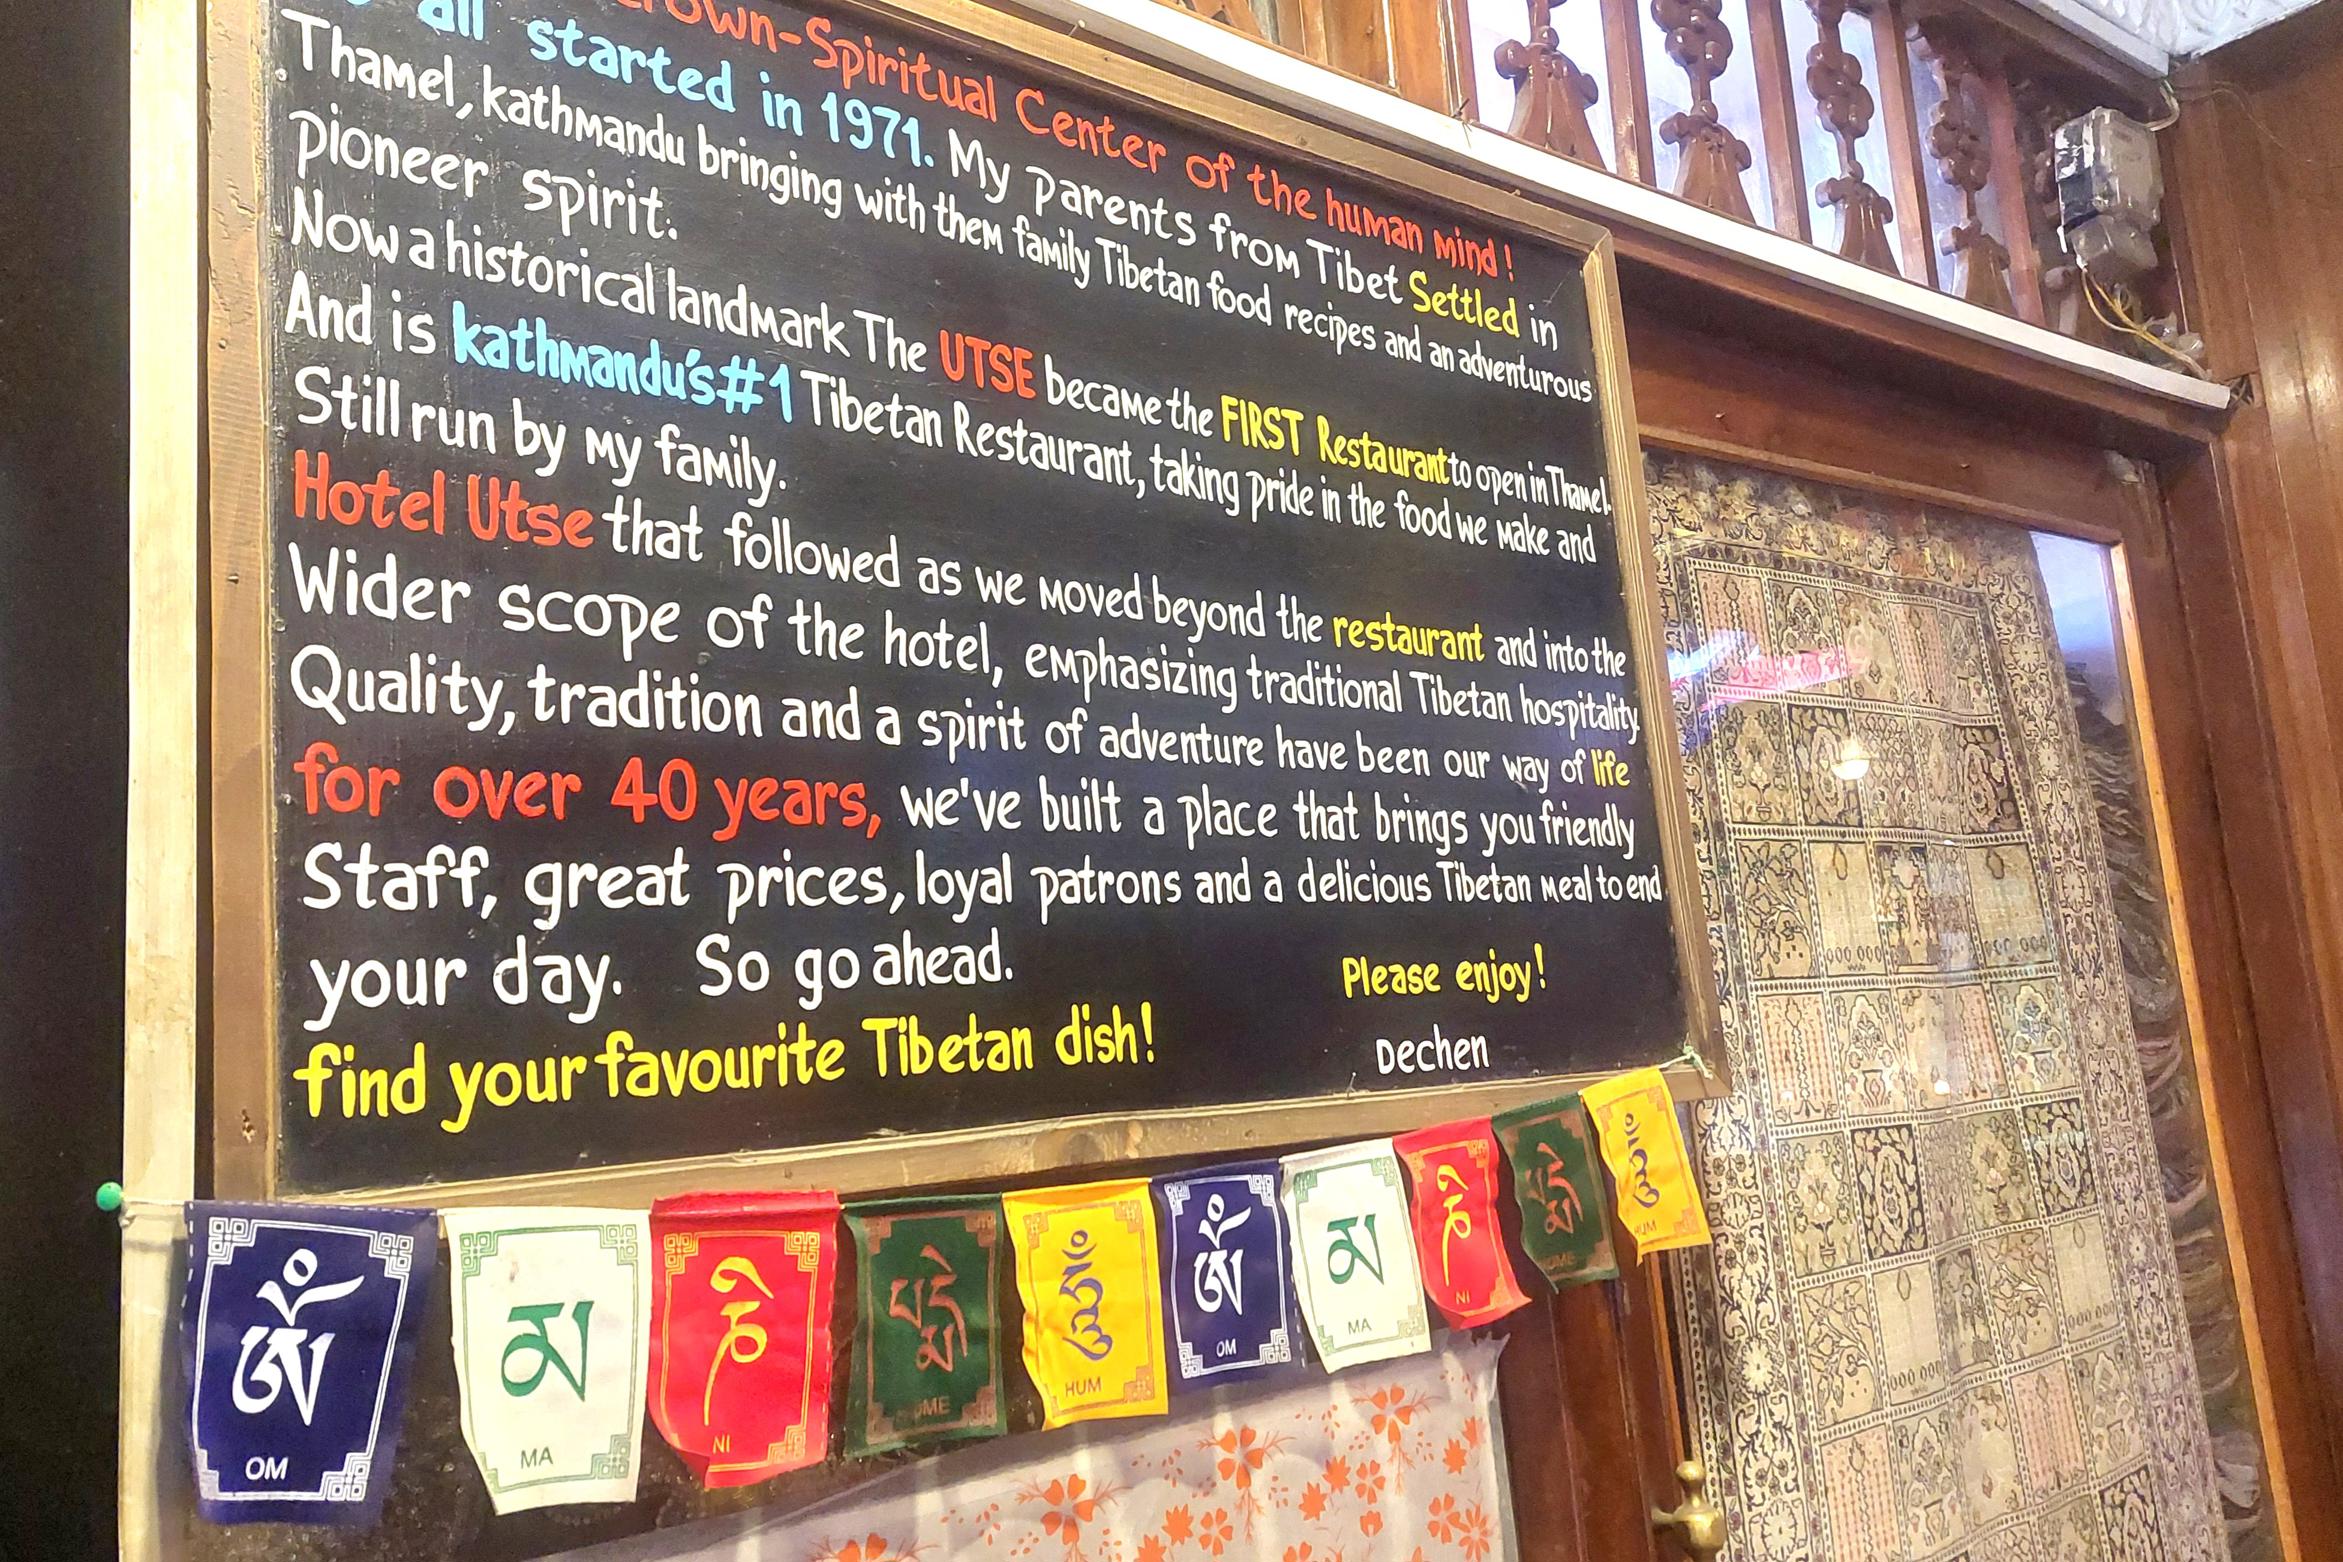 Crown-Spiritual Center of the human mind!
all started in 1971. My parents from Tibet Settled in
Thamel, kathmandu bringing with them family Tibetan food recipes and an adventurous
pioneer spirit.
Now a historical landmark The UTSE became the FIRST Restaurant to open in Thamel.
And is kathmandu's #1 Tibetan Restaurant, taking pride in the food we make and
Still run by my family.
Hotel Utse that followed as we moved beyond the restaurant and into the
Wider scope of the hotel, emphasizing traditional Tibetan hospitality.
Quality, tradition and a spirit of adventure have been our way of life
for over 40 years, we've built a place that brings you friendly
Staff, great prices, loyal patrons and a delicious Tibetan meal to end
your day. So go ahead.
find your favourite Tibetan dish!
Please enjoy!
Dechen
ༀ མ ཎི པདྨེ ཧཱུྃ ༀ མ ཎི པདྨེ ཧཱུྃ
OM MA NI HUM OM MA NI HUM